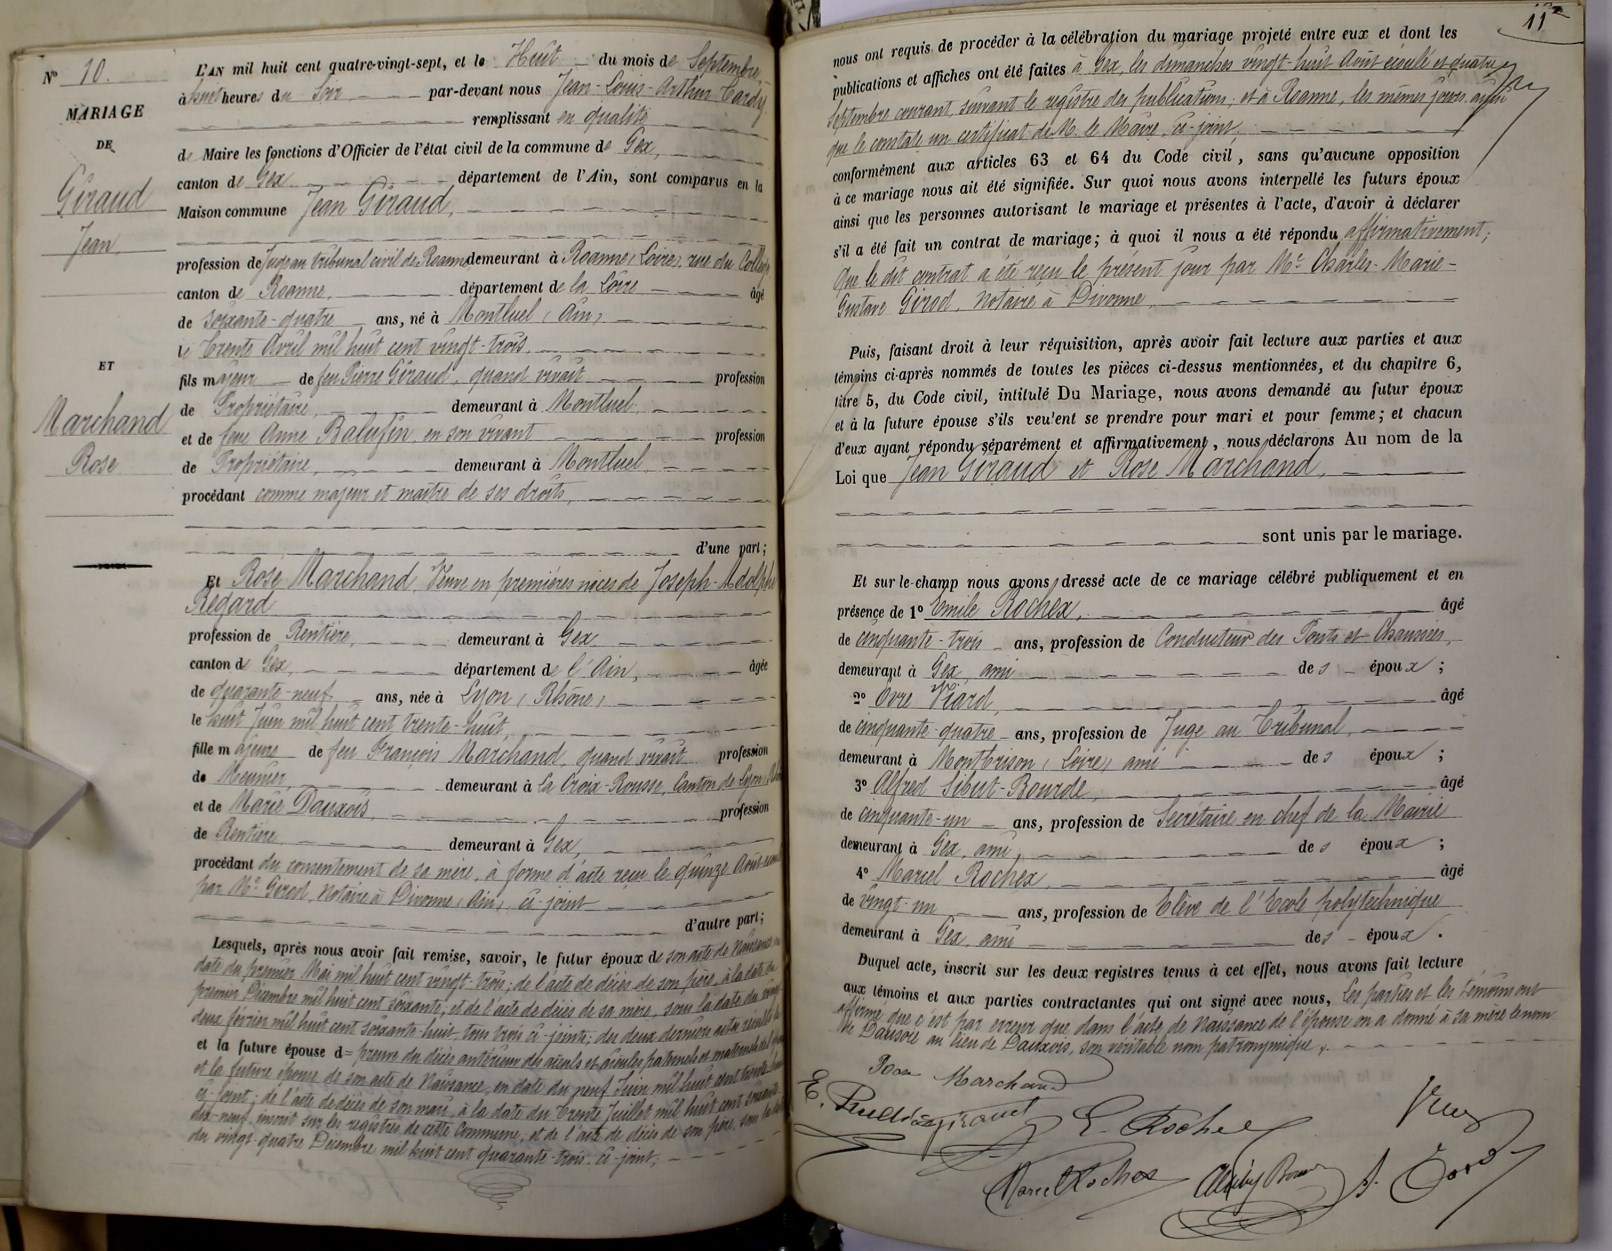 N° 10.
MARIAGE
DE
Giraud
Jean,
ET
Marchand
Rose
L'AN mil huit cent quatre-vingt-sept, et le Huit du mois de Septembre,
à heures du Soir par-devant nous Jean-Louis-Arthur Tardy
remplissant en qualité
de Maire les fonctions d'Officier de l'état civil de la commune de Gex,
canton de Gex département de l'Ain, sont comparus en la
Maison commune Jean Giraud,
profession de Juge au Tribunal civil de Roanne demeurant à Roanne (Loire), rue du Collège
canton de Roanne, département de la Loire âgé
de soixante-quatre ans, né à Montluel (Ain)
le trente Avril mil huit cent vingt-trois,
fils majeur de feu Pierre Giraud, quand vivait profession
de Propriétaire, demeurant à Montluel,
et de feue Anne Balufin, en son vivant profession
de Propriétaire, demeurant à Montluel,
procédant comme majeur et maître de ses droits,
d'une part ;
Et Rose Marchand, Veuve en premières noces de Joseph-Adolphe
Régard
profession de Rentière, demeurant à Gex
canton de Gex, département de l'Ain, âgée
de quarante-neuf ans, née à Lyon (Rhône)
le huit Juin mil huit cent trente-huit,
fille majeure de feu François Marchand, quand vivait profession
de Meunier, demeurant à la Croix-Rousse, Canton de Lyon
et de Marie Dauxois, profession
de Rentière demeurant à Gex,
procédant du consentement de sa mère, à forme d'acte reçu le quinze Août
par Me Girod, Notaire à Divonne (Ain), ci-joint
d'autre part ;
Lesquels, après nous avoir fait remise, savoir, le futur époux de son acte de Naissance
date du premier Mai mil huit cent vingt-trois ; de l'acte de décès de son père, à la date du
premier Décembre mil huit cent soixante, et de l'acte de décès de sa mère, sous la date du vingt
deux février mil huit cent soixante-huit, tous trois ci-joints ; des deux derniers actes résulte la
et la future épouse d= preuve du décès antérieur des aïeuls et aïeules paternels et maternels
et la future épouse de son acte de Naissance, en date du neuf Juin mil huit cent trente-huit
ci-joint ; de l'acte de décès de son mari, à la date du trente Juillet mil huit cent soixante
dix-neuf, inscrit sur les registres de cette Commune, et de l'acte de décès de son père, sous la date
du vingt-quatre Décembre mil huit cent quarante-trois, ci-joint,
11
nous ont requis de procéder à la célébration du mariage projeté entre eux et dont les
publications et affiches ont été faites à Gex, les dimanches vingt-huit Août écoulé et quatre
Septembre courant, suivant le registre des publications, et à Roanne, les mêmes jours, ainsi
que le constate un certificat de M. le Maire, ci-joint,
conformément aux articles 63 et 64 du Code civil, sans qu'aucune opposition
à ce mariage nous ait été signifiée. Sur quoi nous avons interpellé les futurs époux
ainsi que les personnes autorisant le mariage et présentes à l'acte, d'avoir à déclarer
s'il a été fait un contrat de mariage ; à quoi il nous a été répondu affirmativement ;
Que le dit contrat a été reçu le présent jour par Me Charles-Marie-
Gustave Girod, Notaire à Divonne,
Puis, faisant droit à leur réquisition, après avoir fait lecture aux parties et aux
témoins ci-après nommés de toutes les pièces ci-dessus mentionnées, et du chapitre 6,
titre 5, du Code civil, intitulé Du Mariage, nous avons demandé au futur époux
et à la future épouse s'ils veulent se prendre pour mari et pour femme ; et chacun
d'eux ayant répondu séparément et affirmativement, nous déclarons Au nom de la
Loi que Jean Giraud et Rose Marchand,
sont unis par le mariage.
Et sur-le-champ nous avons dressé acte de ce mariage célébré publiquement et en
présence de 1° Emile Rochex, âgé
de cinquante-trois ans, profession de Conducteur des Ponts et Chaussées,
demeurant à Gex, ami des époux ;
2° Ovre Viard, âgé
de cinquante-quatre ans, profession de Juge au Tribunal,
demeurant à Montbrison (Loire) ami des époux ;
3° Alfred Sibut-Bourde, âgé
de cinquante-un ans, profession de Secrétaire en chef de la Mairie
demeurant à Gex, ami, des époux ;
4° Marcel Rochex, âgé
de vingt-un ans, profession de Elève de l'Ecole polytechnique
demeurant à Gex, ami des époux.
Duquel acte, inscrit sur les deux registres tenus à cet effet, nous avons fait lecture
aux témoins et aux parties contractantes qui ont signé avec nous, Les parties et les témoins ont
affirmé que c'est par erreur que dans l'acte de Naissance de l'épouse on a donné à sa mère le nom
de Dausoie au lieu de Dauxois, son véritable nom patronymique.
Marchand
Giraud
E. Rochex
Marcel Rochex